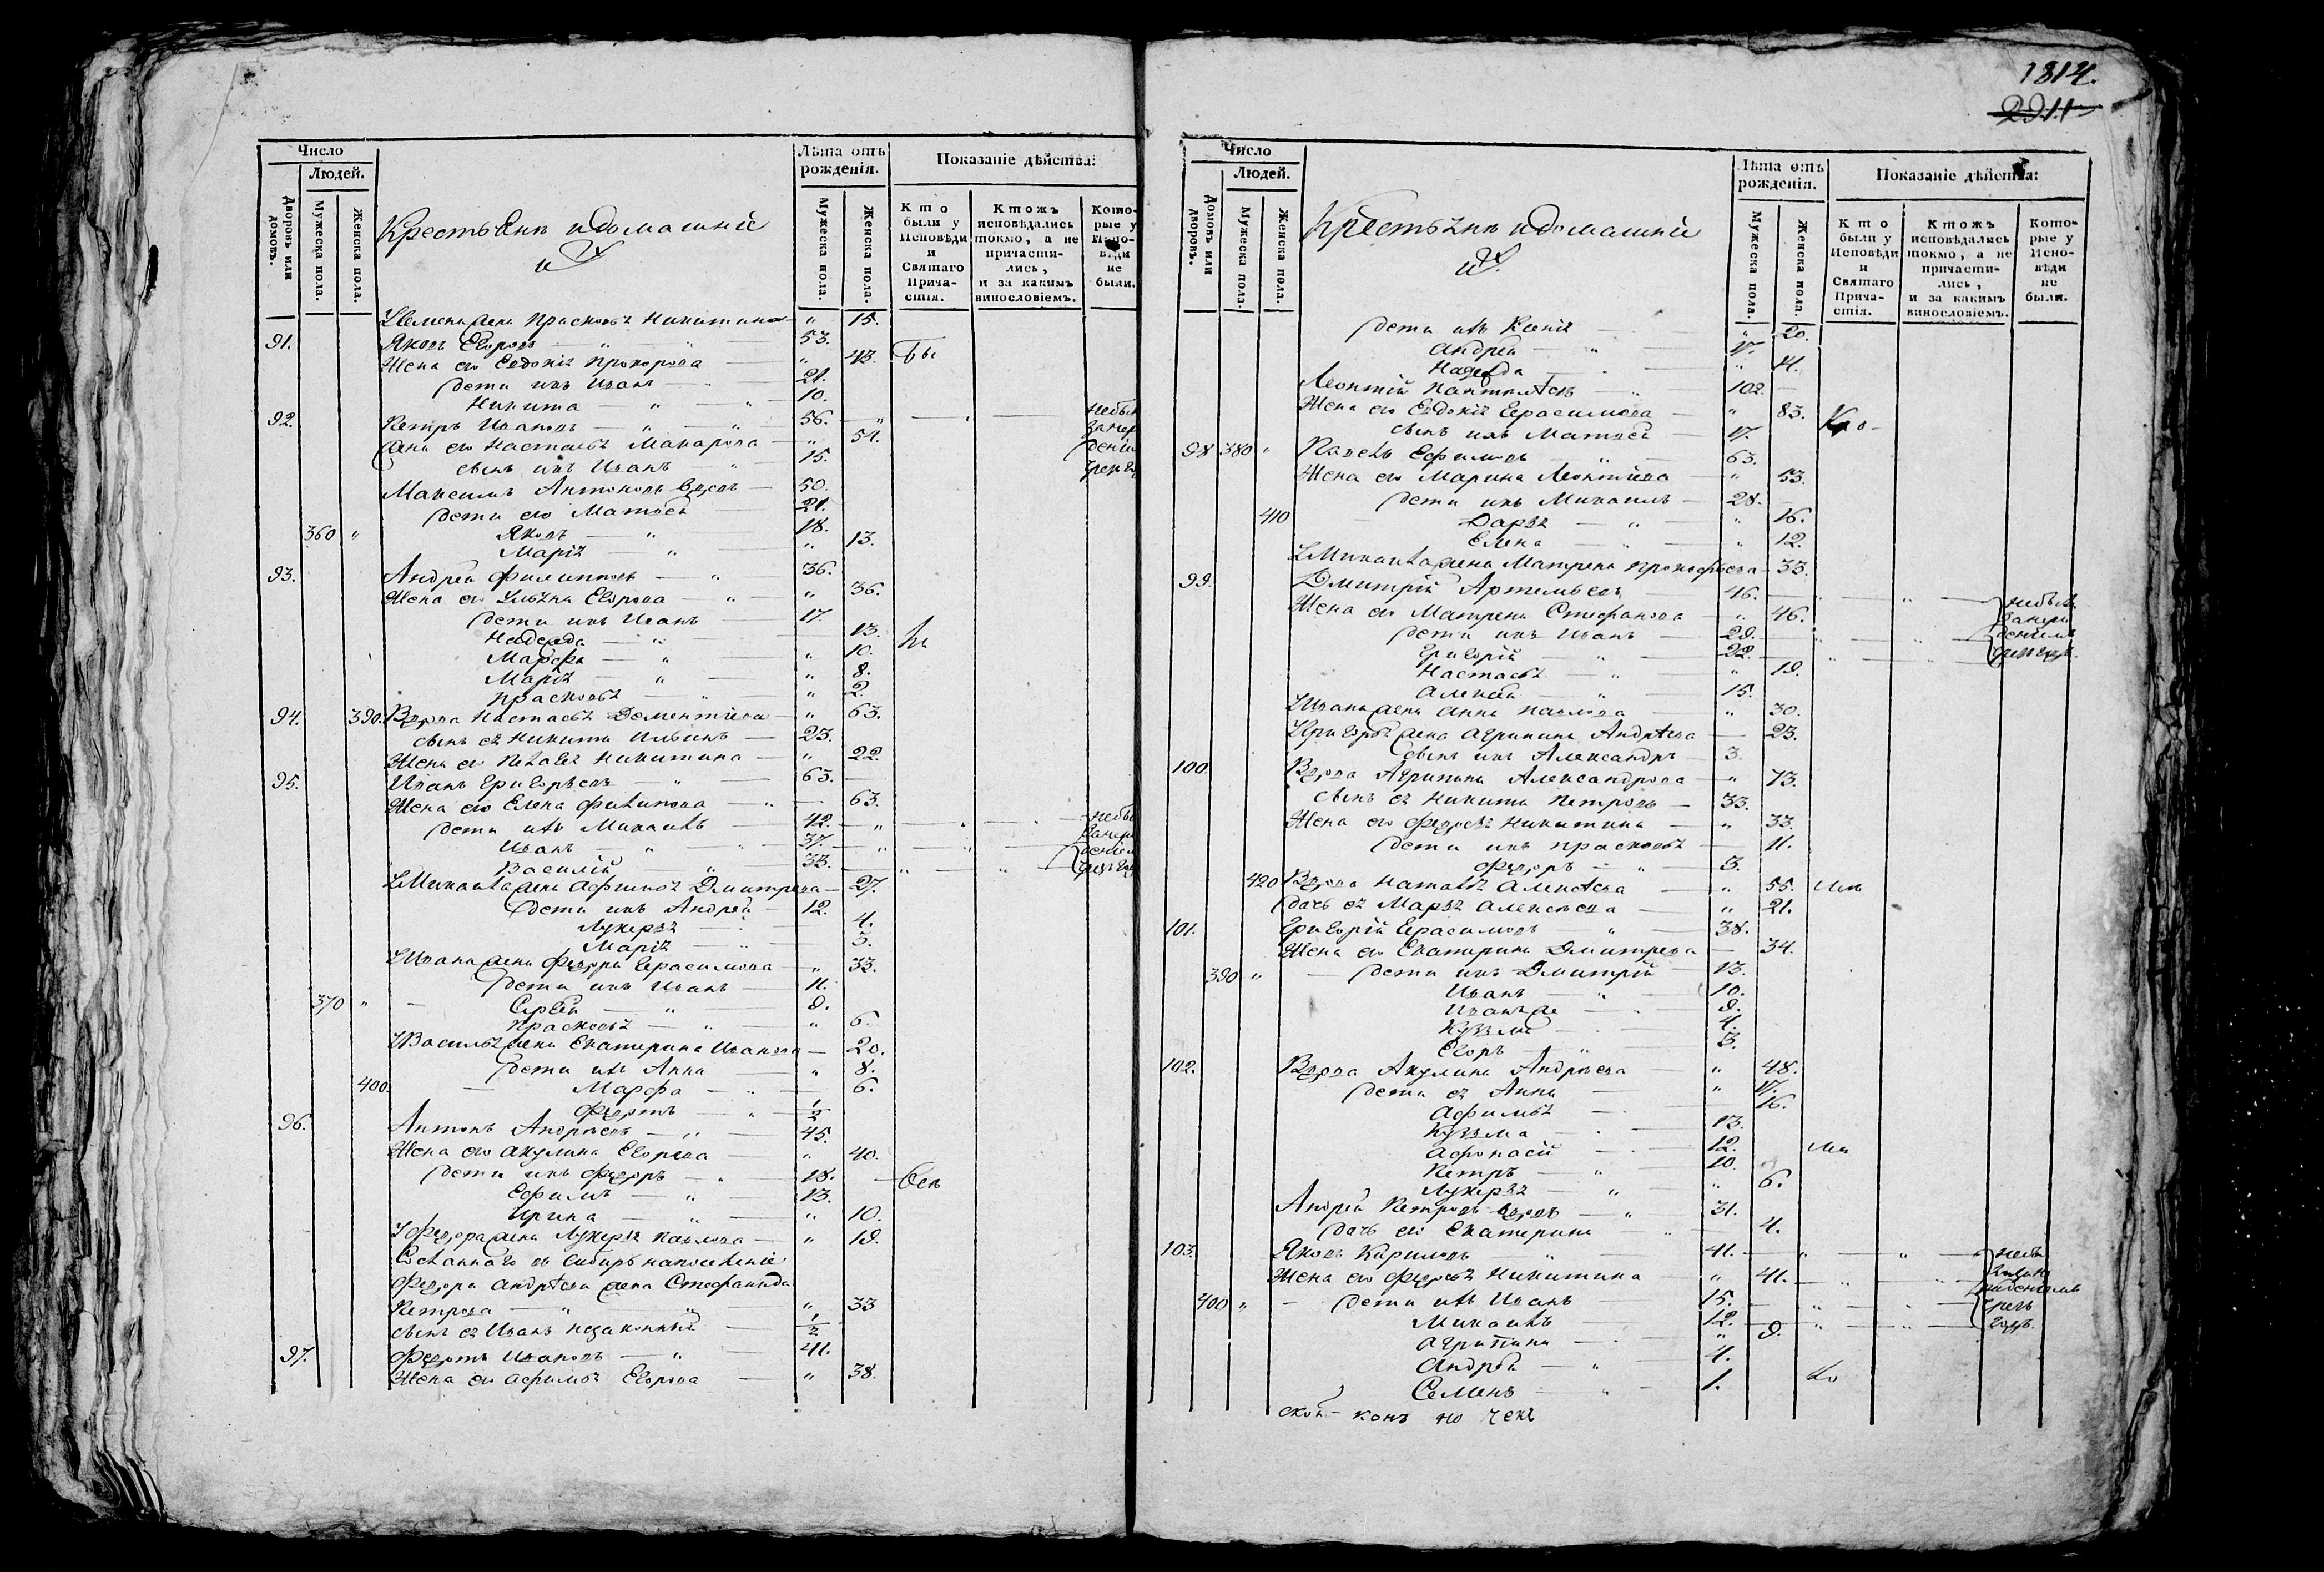 Число
Людей.
Лѣта отъ рождения.
Показаніе дѣйства:
Дворовъ или домовъ.
Мужеска пола.
Женска пола.
Крестьянъ и домашніе
ихъ
Мужеска пола.
Женска пола.
Кто были у Исповѣди и Святаго Причастія.
Ктожъ исповѣдались токмо, а не причастились, и за какимъ винословіемъ.
Которые у Исповѣди не были.
Жена Прасковья Никитина " 15.
91. Яковъ Егоровъ 53.
Жена его Евдокія Прохорова " 43. Бы
Дети ихъ Иванъ 21.
Никита 10.
92. Петръ Ивановъ 56.
Жена его Настасья Макарова " 54.
сынъ ихъ Иванъ 15.
Максимъ Антоновъ вдовъ 50.
Дети его Матвѣй 21.
360 " Яковъ 18.
Марія " 13.
93. Андрей Филиповъ 36.
Жена его Ульяна Егорова " 36.
Дети ихъ Иванъ 17.
Надежда 13. ли
Марфа " 10.
Марія " 8.
Прасковья " 2.
94. 390. Вдова Настасья Дементіева " 63.
сынъ ея Никита Ильинъ 23.
Жена его Пелагея Никитина " 22.
95. Иванъ Григорьевъ 63.
Жена его Елена Филипова 63.
Дети ихъ Михаилъ 42.
Иванъ 37.
Василій 33.
У Михаила жена Афимья Дмитрева 27.
Дети ихъ Андрей 12.
Лукерья 4.
Марія 3.
У Ивана жена Федора Герасимова " 33.
Дети ихъ Иванъ 11.
370 " Сергѣй 9.
Прасковья " 6.
У Василья жена Екатерина Иванова 20.
Дети ихъ Анна " 8.
400. Марфа 6.
Федотъ 1/2
96. Антонъ Андреевъ 45.
Жена его Акулина Егорова " 40.
Дети ихъ Федоръ 18. Вси
Ефимъ 13.
Ирина " 10.
У Федора жена Лукерья Павлова " 19.
Сосланнаго въ Сибирь на поселеніе
Федора Андрѣева жена Стефанида
Петрова " 33
сынъ ея Иванъ незаконный 1/2
97. Федотъ Ивановъ 41.
Жена его Афимья Егорова " 38.
1814.
Число
Людей.
Лѣта отъ рождения.
Показаніе дѣйства:
Домовъ или дворовъ.
Мужеска пола.
Женска пола.
Крестьянъ и домашніе
ихъ
Мужеска пола.
Женска пола.
Кто были у Исповѣди и Святаго Причастія.
Ктожъ исповѣдались токмо, а не причастились, и за какимъ винословіемъ.
Которые у Исповѣди не были.
Дети ихъ Ксенія " 20.
Андрей 17.
Надежда " 14.
Леонтій Пантелѣевъ 102.
Жена его Евдокія Герасимова " 83.
сынъ ихъ Матвѣй 17.
98 380 " Павелъ Ефимовъ 63.
Жена его Марина Леонтіева " 53.
Дети ихъ Михаилъ 28.
410 Дарья " 16.
Елена " 12.
У Михаила жена Матрена Прокофьева 33.
99. Дмитрій Артемьевъ 46.
Жена его Матрена Стефанова " 46.
Дети ихъ Иванъ 29.
Григорій 22.
Настасья " 19.
Алексѣй 15.
У Ивана жена Анна Павлова " 30.
У Григорья жена Агрипина Андрѣева 23.
сынъ ихъ Александръ 3.
100. Вдова Агрипина Александрова " 73.
сынъ ея Никита Петровъ 33.
Жена его Федосья Никитина " 33.
Дети ихъ Прасковья 11.
Федоръ 3.
420 Вдова Наталья Алексѣева " 55.
Дочь ея Марья Алексѣева " 21.
101. Григорій Герасимовъ 38.
Жена его Екатерина Дмитрева 34.
390 " Дети ихъ Дмитрій 13.
Иванъ 10.
Иванъ же 9.
Кузьма 4.
Егоръ 3.
102. Вдова Акулина Андреева " 48.
Дети ея Анна " 17.
Афимья 16.
Кузьма 13.
Афонасій 12.
Петръ 10.
Лукерья " 6.
Андрей Петровъ вдовъ 31.
Дочь его Екатерина 4.
103. Яковъ Карповъ 41.
Жена его Федосья Никитина " 41.
400 " Дети ихъ Иванъ 15.
Михаилъ 12.
Агрипина " 9.
Андрей 4.
Семенъ 1.